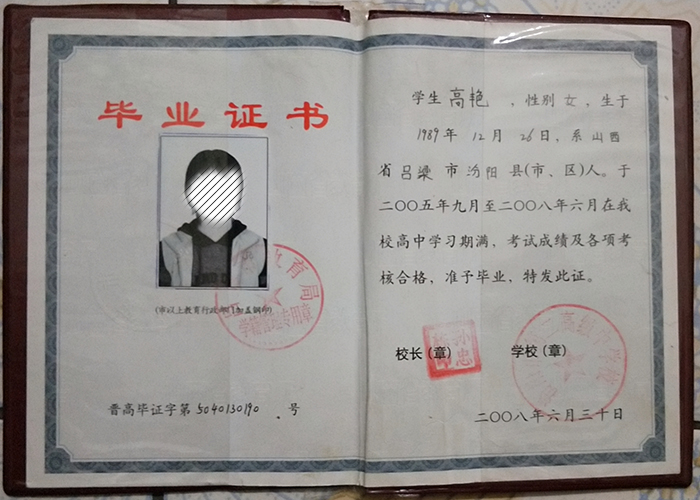 毕业证书
(市以上教育行政部门加盖钢印)
学籍管理专用章
晋高毕证字第5040130190号
学生 高艳 ，性别 女，生于
1989年 12月 26日，系山西
省吕梁市汾阳县(市、区)人。于
二〇〇五年九月至二〇〇八年六月在我
校高中学习期满，考试成绩及各项考
核合格，准予毕业，特发此证。
校长（章） 学校（章）
二〇〇八年六月三十日